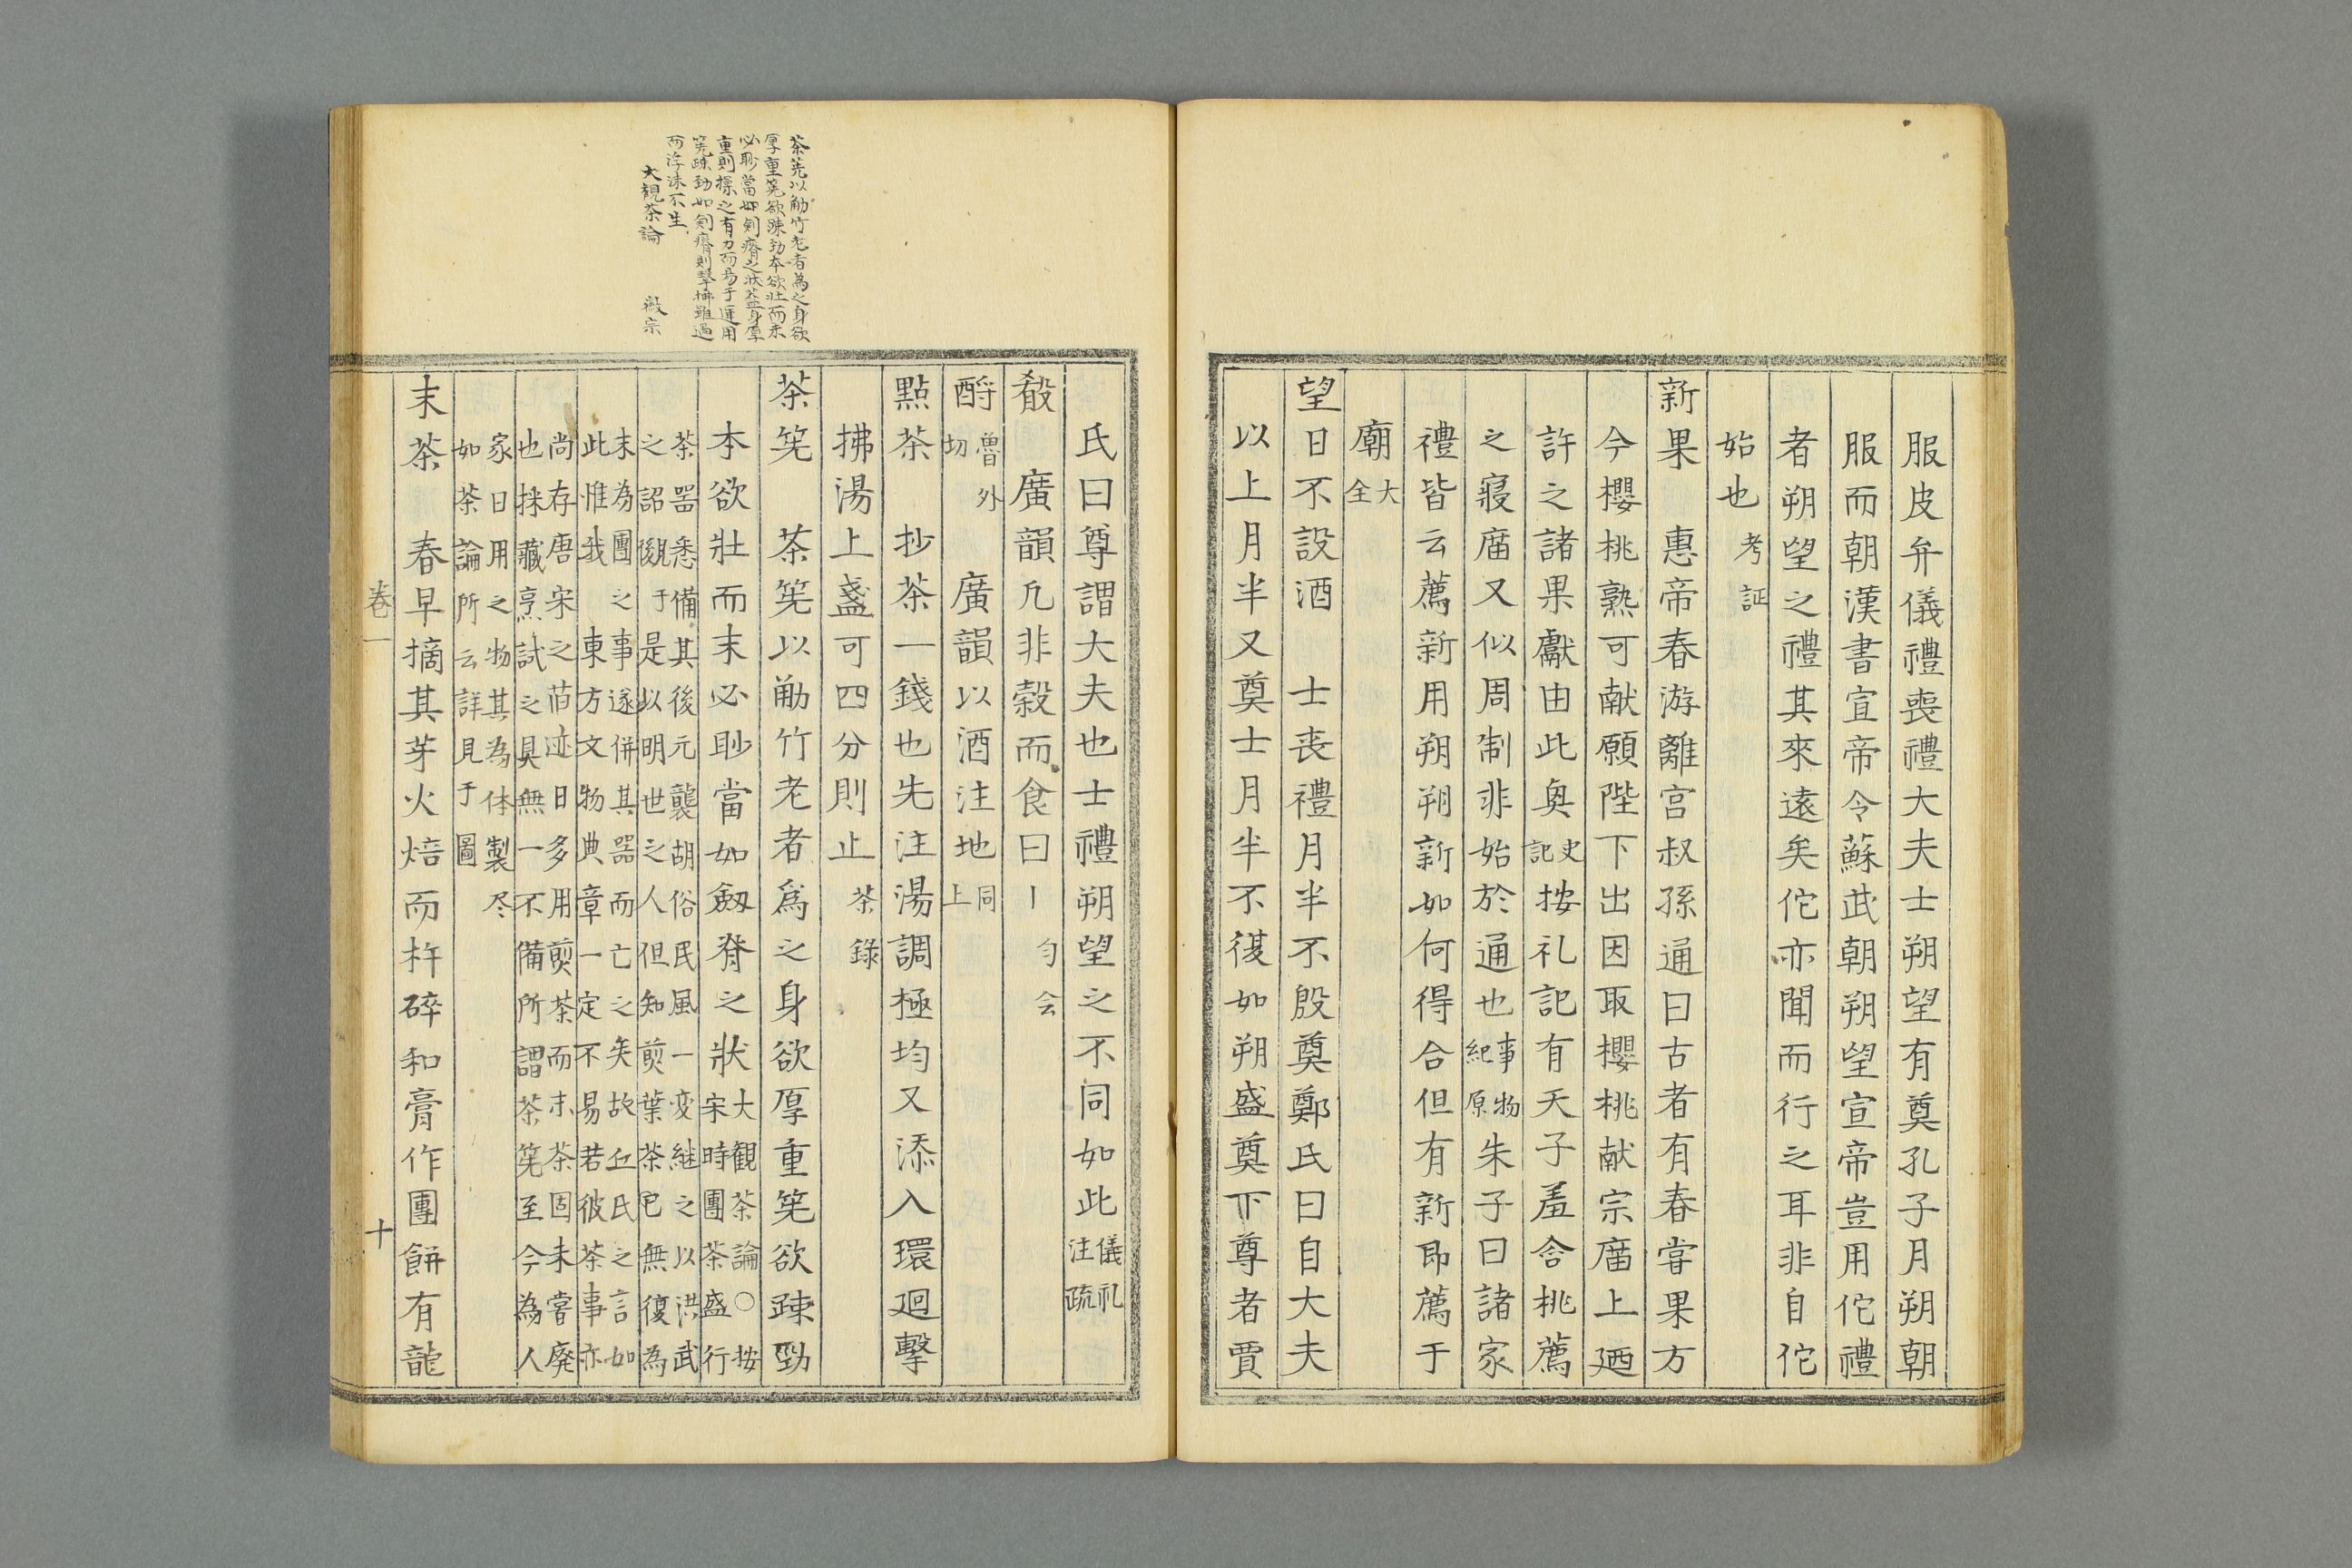 服皮弁儀禮喪禮大夫士朔望有奠孔子月朔朝
服而朝漢書宣帝令蘇武朝朔望宣帝豈用佗禮
者朔望之禮其來遠矣佗亦聞而行之耳非自佗
始也考証
新果 惠帝春游離宮叔孫通曰古者有春甞果方
今櫻桃熟可献願陛下出因取櫻桃献宗庿上廼
許之諸果獻由此奥史記按礼記有天子羞含桃薦
之寢庿又似周制非始於通也事物紀原朱子曰諸家
禮皆云薦新用朔朔新如何得合但有新即薦于
廟大全
望日不設酒 士丧禮月半不殷奠鄭氏曰自大夫
以上月半又奠士月半不復如朔盛奠下尊者賈
氏曰尊謂大夫也士禮朔望之不同如此儀礼注疏
殽 廣韻凡非穀而食曰丨匀会
酹魯外切 廣韻以酒注地同上
點茶 抄茶一錢也先注湯調極均又添入環廻擊
拂湯上盞可四分則止茶錄
茶筅 茶筅以觔竹老者爲之身欲厚重筅欲踈勁
本欲壯而末必眇當如劔脊之狀大観茶論○按宋時團茶盛行
茶器悉備其後元襲胡俗民風一变継之以洪武
之詔後覌于是以明世之人但知煎葉茶已無復為
末為團之事遂併其器而亡之矣故丘氏之言如
此惟我 東方文物典章一定不易若彼茶事亦
尚存唐宋之茴迹日多用煎茶而末茶固未甞廃
也採藏烹試之具無一不備所謂茶筅至今為人
家日用之物其為体製尽
如茶論所云詳見于圖
末茶 春早摘其芽火焙而杵碎和膏作團餅有龍
卷一 十
茶筅以觔竹老者為之身欲
厚重筅欲踈勁本欲壯而末
必眇當如剣瘠之狀盖身厚
重則操之有力而易于運用
筅踈勁如剣瘠則擊拂雖過
而浮沫不生
大観茶論 徽宗